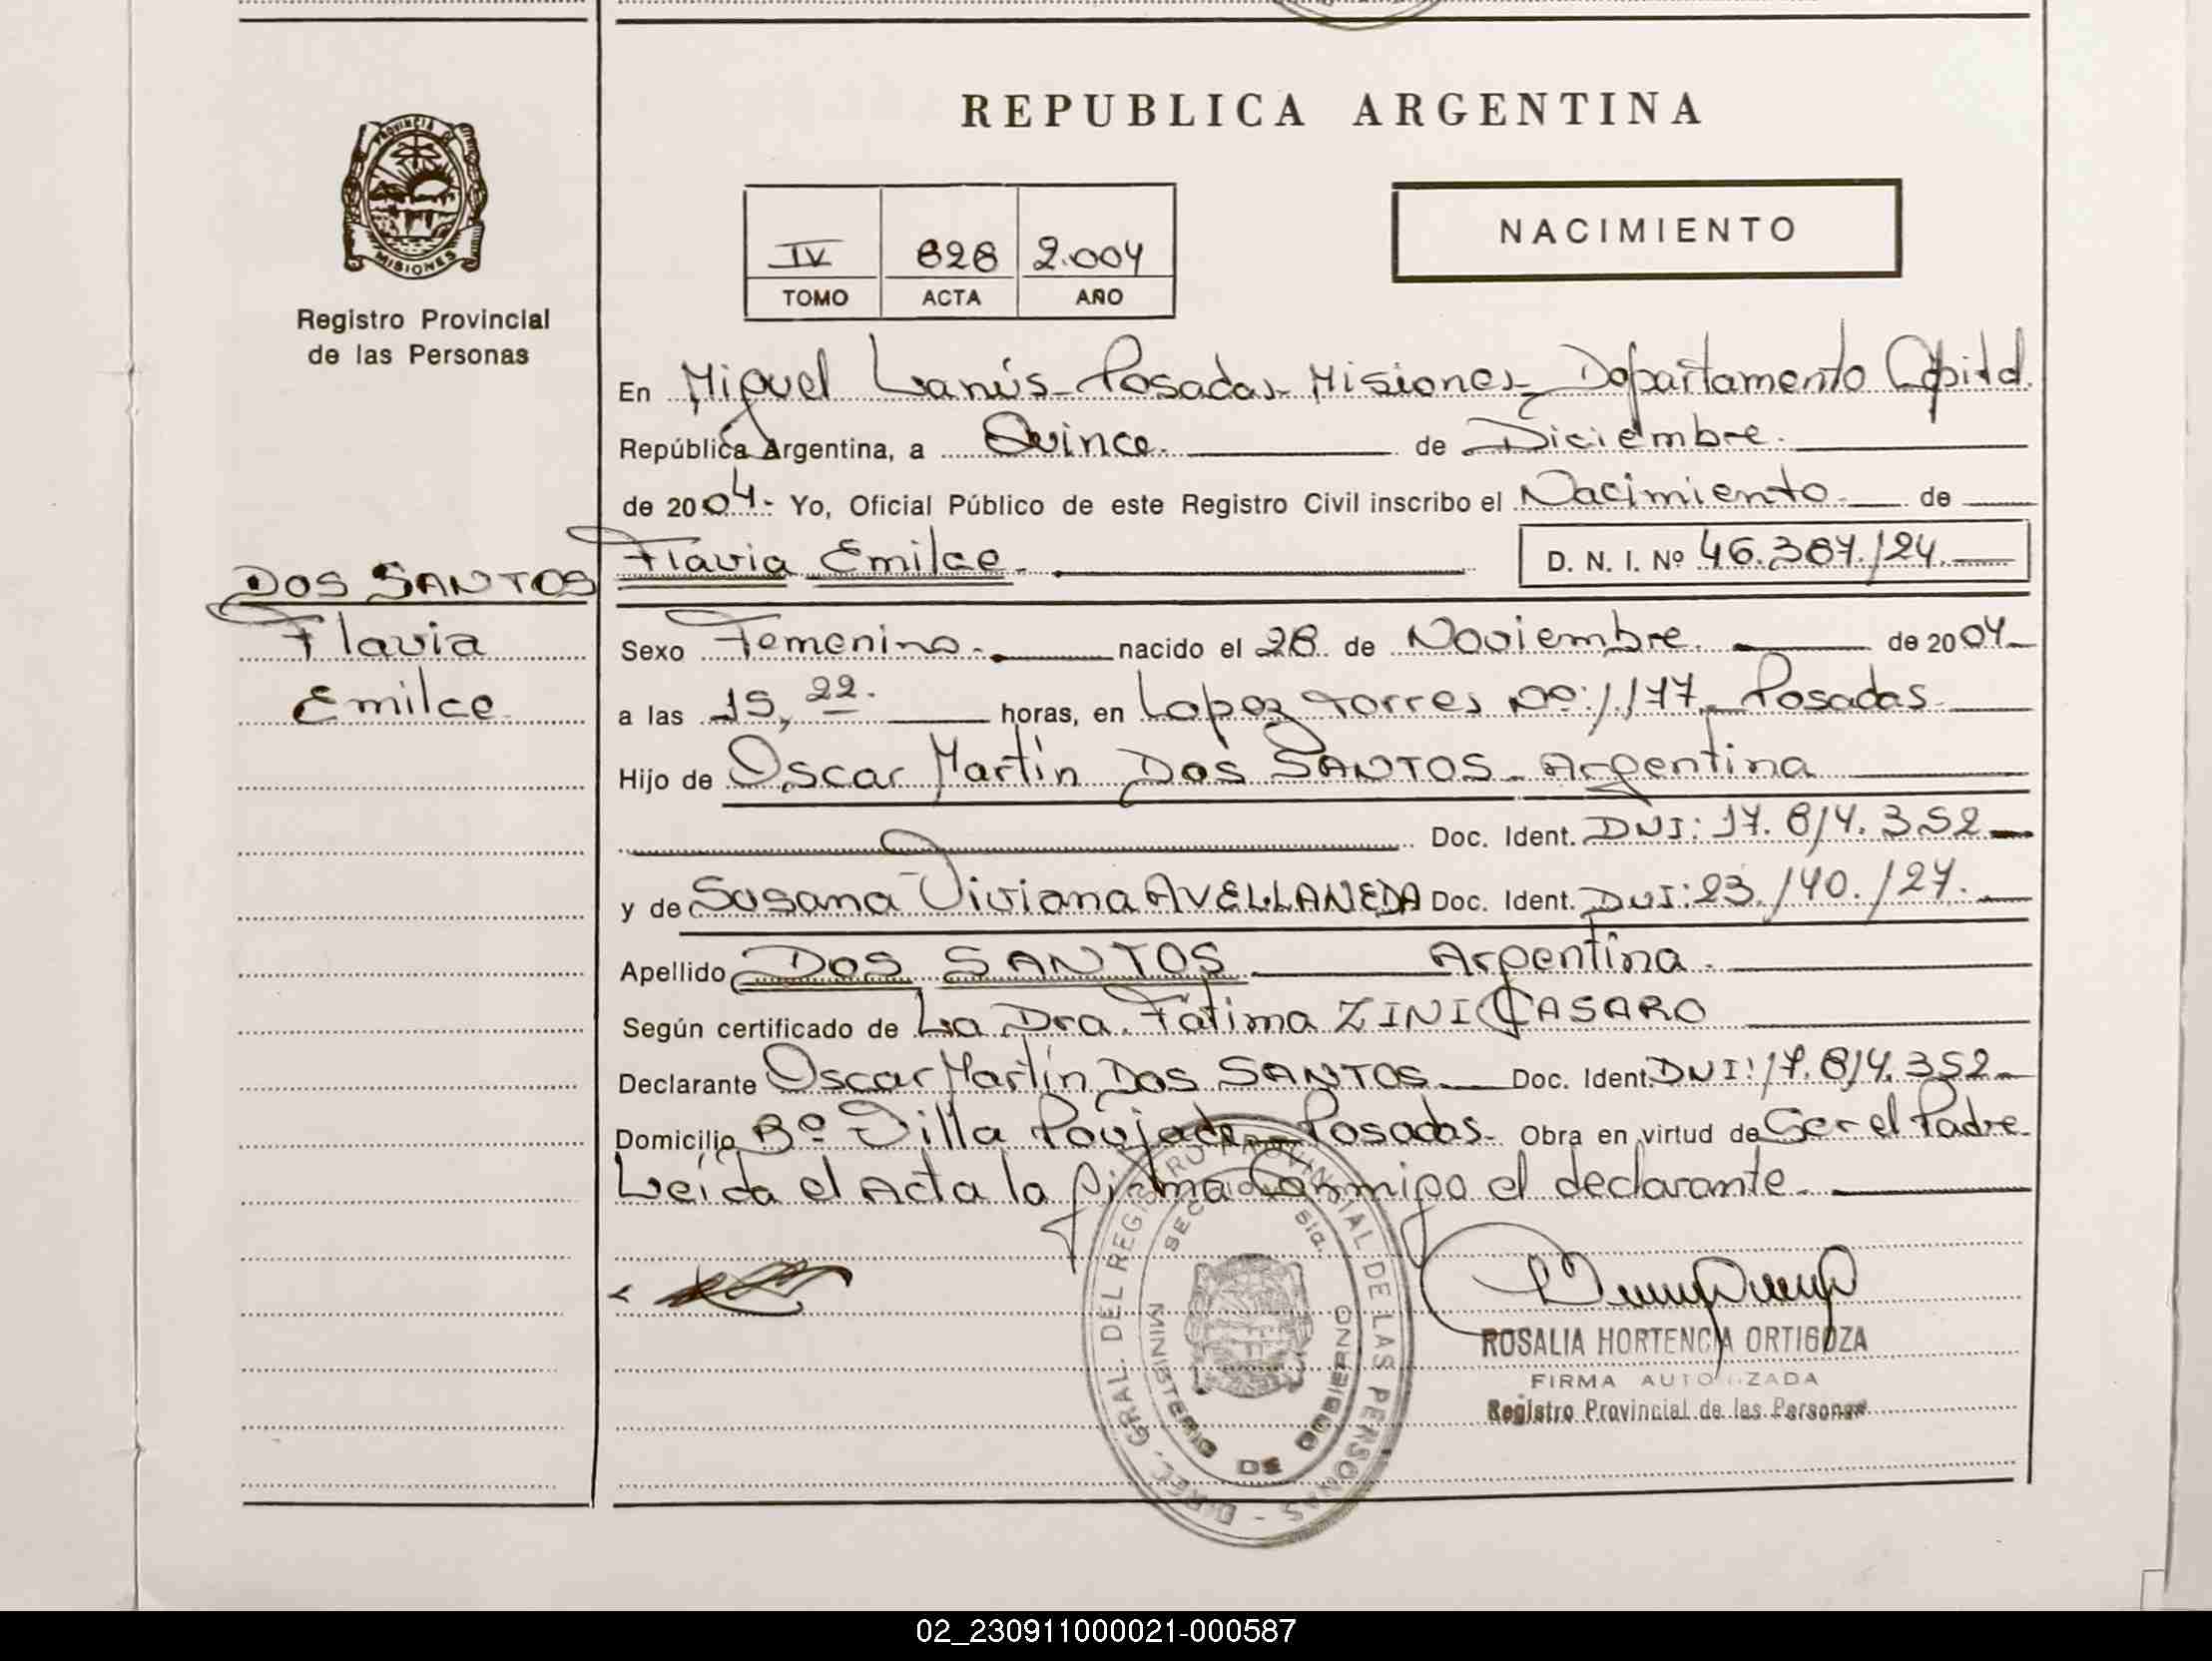 REPUBLICA ARGENTINA
PROVINCIA DE
MISIONES
Registro Provincial
de las Personas
NACIMIENTO
IV 828 2.004
TOMO ACTA AÑO
En Miguel Lanús - Posadas - Misiones - Departamento Capital.
República Argentina, a Quince. de Diciembre.
de 2004.- Yo, Oficial Público de este Registro Civil inscribo el Nacimiento. de
Flavia Emilce. D. N. I. Nº 46.387.124.
DOS SANTOS
Flavia
Emilce
Sexo Femenino. nacido el 28 de Noviembre. de 2004
a las 15,22. horas, en Lopez Torres Nº: 1.177 - Posadas
Hijo de Oscar Martín Dos SANTOS - Argentina
Doc. Ident. DNI: 17.814.352
y de Susana Viviana AVELLANEDA Doc. Ident. DNI: 23.140.127.
Apellido DOS SANTOS Argentina.
Según certificado de La Dra. Fátima ZINI CASARO
Declarante Oscar Martín Dos SANTOS Doc. Ident. DNI: 17.814.352
Domicilio Bº Villa Poujade - Posadas - Obra en virtud de Ser el Padre
Leída el Acta la firma Conmigo el declarante.
DIREC. GRAL. DEL REGISTRO PROVINCIAL DE LAS PERSONAS -
MINISTERIO DE GOBIERNO
ROSALIA HORTENCIA ORTIGOZA
FIRMA AUTORIZADA
Registro Provincial de las Personas
02_230911000021-000587